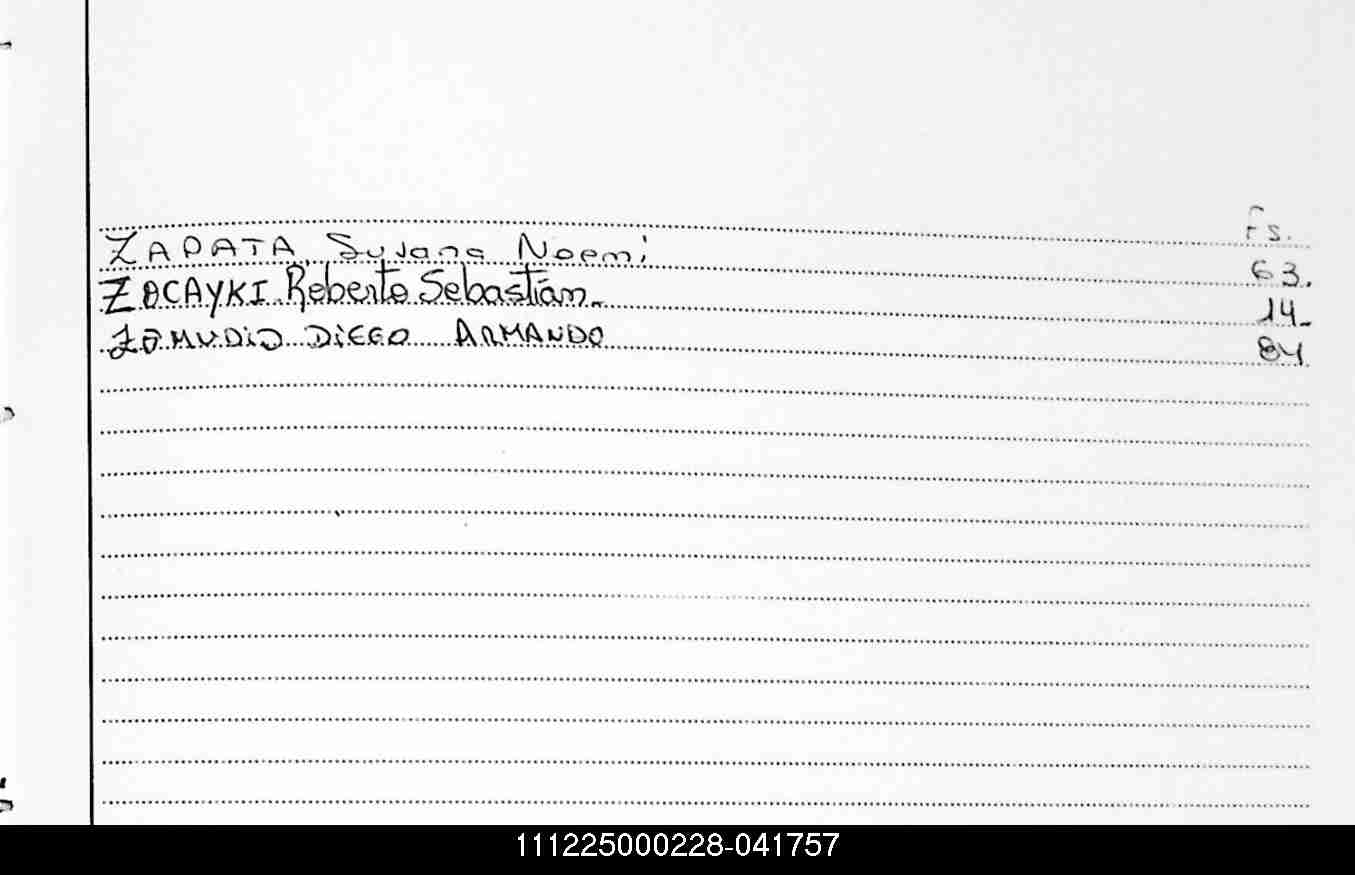 Fs.
ZAPATA Susana Noemi 63.
ZOCAYKI Roberto Sebastián. 14-
ZAMUDIO DIEGO ARMANDO 84
111225000228-041757